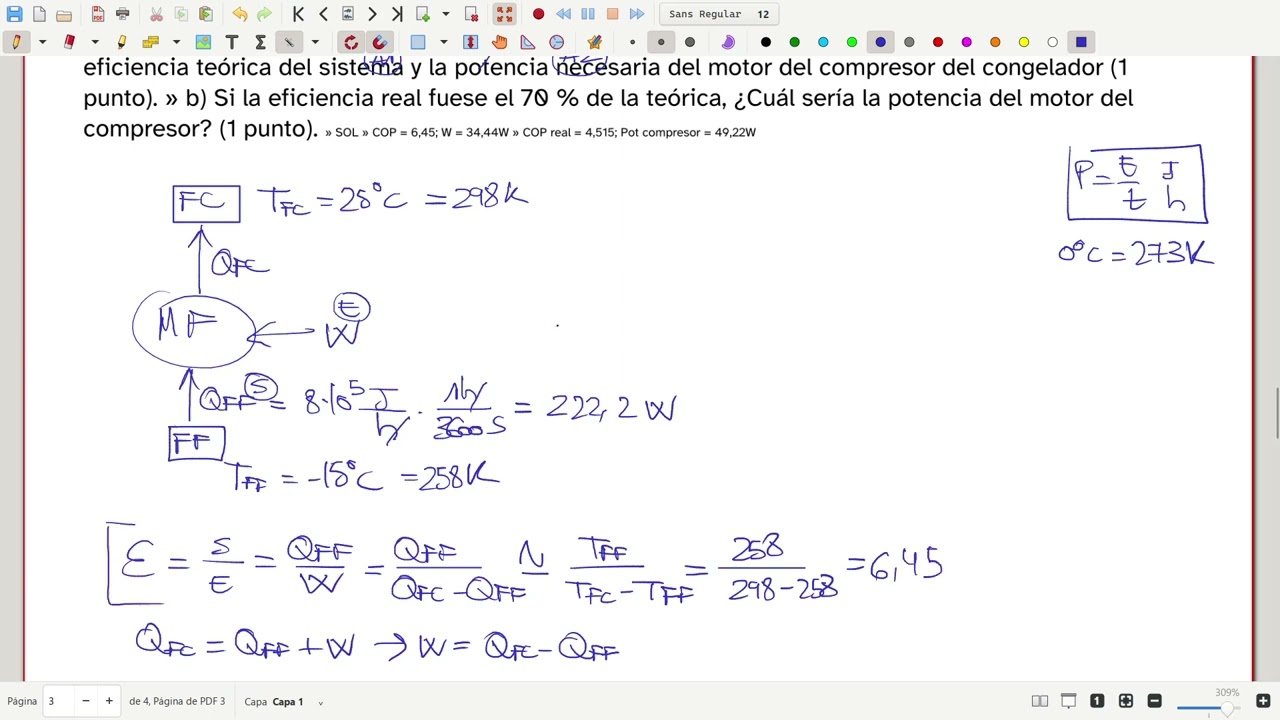 Sans Regular 12
eficiencia teórica del sistema y la potencia necesaria del motor del compresor del congelador (1
punto). » b) Si la eficiencia real fuese el 70 % de la teórica, ¿Cuál sería la potencia del motor del
compresor? (1 punto). » SOL » COP = 6,45; W = 34,44W » COP real = 4,515; Pot compresor = 49,22W
P = E/t J/h
FC T_FC = 25°C = 298K
0°C = 273K
Q_FC
MF W E
Q_FF S = 8·10^5 J/h · 1h/3600s = 222,2 W
FF
T_FF = -15°C = 258K
ε = S/E = Q_FF/W = Q_FF/(Q_FC - Q_FF) ≃ T_FF/(T_FC - T_FF) = 258/(298-258) = 6,45
Q_FC = Q_FF + W → W = Q_FC - Q_FF
Página 3 de 4, Página de PDF 3 Capa Capa 1 1 309%